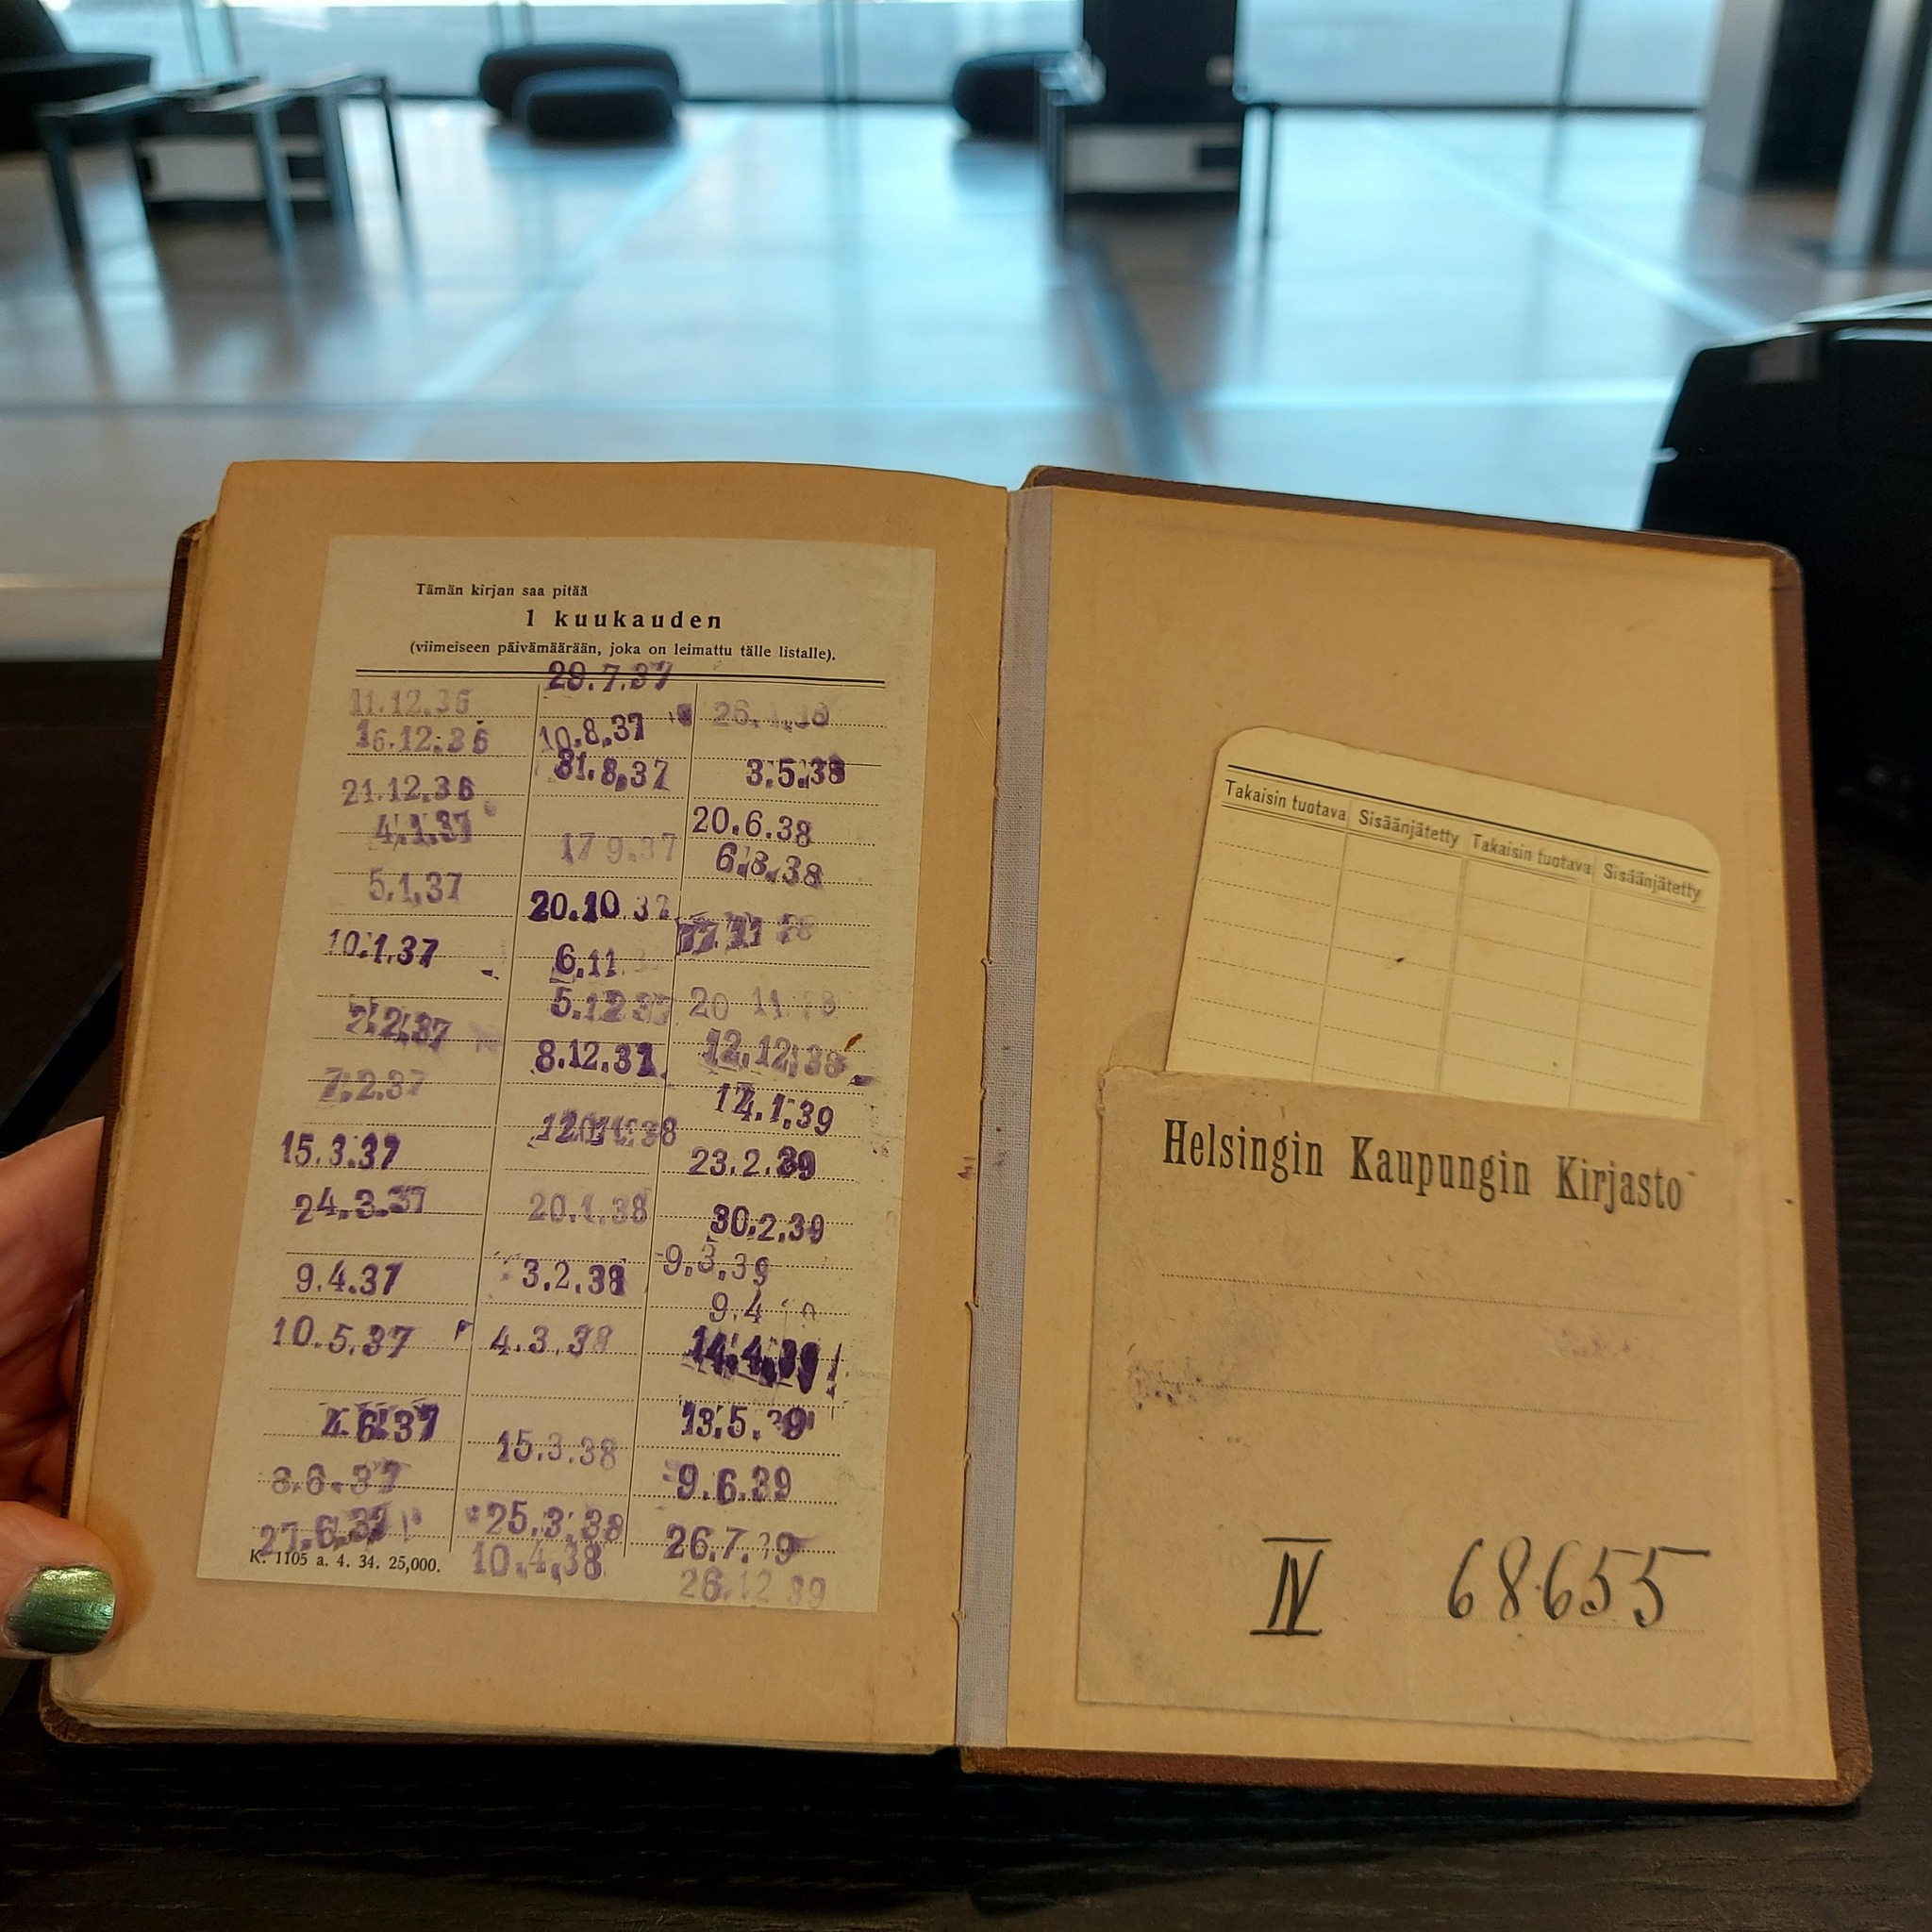 Tämän kirjan saa pitää
1 kuukauden
(viimeiseen päivämäärään, joka on leimattu tälle listalle).
11.12.36
16.12.36
21.12.36
4.1.37
5.1.37
10.1.37
2.2.37
7.2.37
15.3.37
24.3.37
9.4.37
10.5.37
4.6.37
8.6.37
27.6.37
K. 1105 a. 4. 34. 25,000.
29.7.37
10.8.37
31.8.37
17 9.37
20.10 37
6.11
5.12 37
8.12.37
20.1.38
3.2.38
4.3.38
15.3.38
25.3.38
10.4.38
3.5.38
20.6.38
6.8.38
20 11
12.12.38
14.1.39
23.2.39
30.2.39
9.3.39
9.4
14.4.39
13.5. 9
9.6.39
26.7. 9
26.12 39
Takaisin tuotava Sisäänjätetty Takaisin tuotava Sisäänjätetty
Helsingin Kaupungin Kirjasto
IV 68655